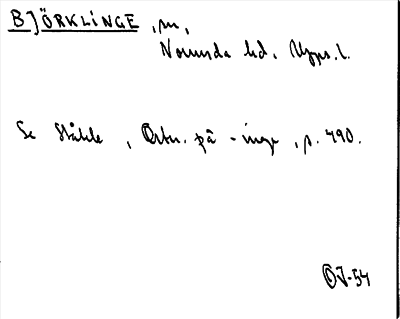 BJÖRKLINGE, sn,
Norunda hd, Upps. l.
Se Ståhle, Ortn. på -inge, p. 490.
OJ-54